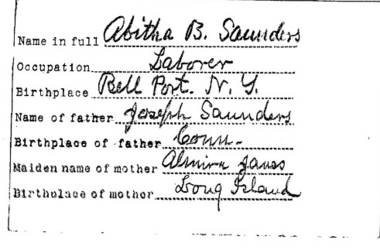 Name in full Abitha B. Saunders
Occupation Laborer
Birthplace Bell Port. N. Y.
Name of father Joseph Saunders
Birthplace of father Conn.
Maiden name of mother Almira
Birthplace of mother Long Island